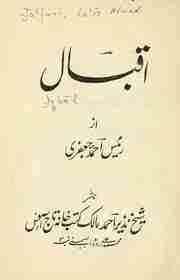 Ja'fari, Ra'is Ahmad
اقبال
Iqbal
از
رئیس احمد جعفری
ناشر
شیخ نذیر احمد مالک کتب خانہ تاج آفس
محمد علی روڈ بمبئی